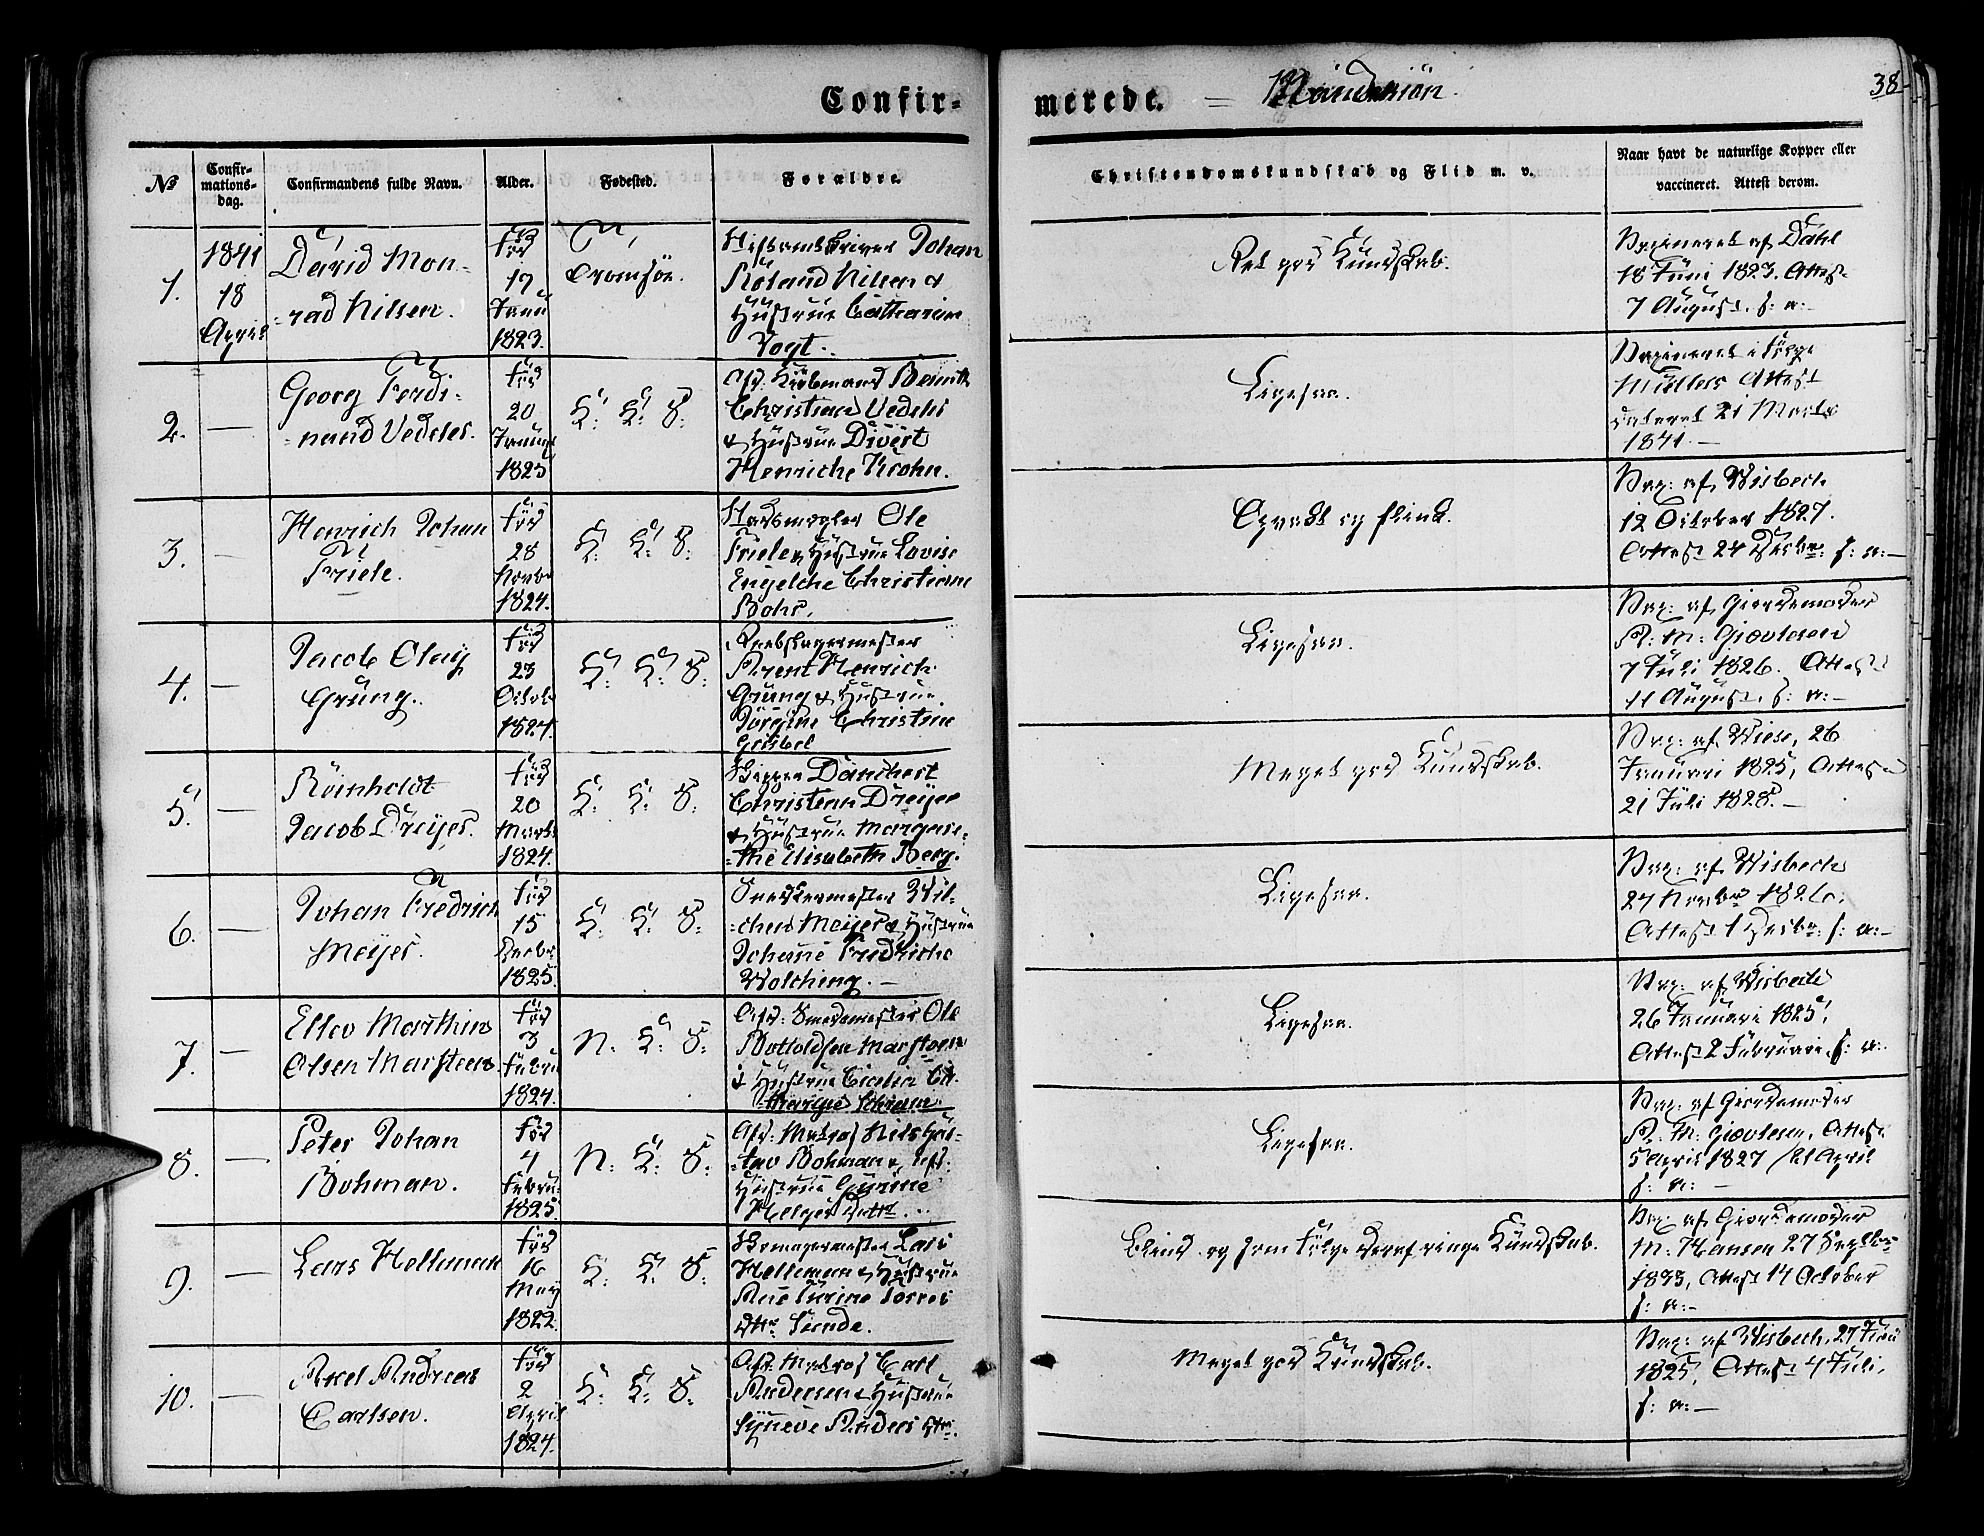 Confir-
merede. = Mandkiön
38
№
Confir-
mations-
dag.
Confirmandens fulde Navn.
Alder.
Fødested.
Forældre.
Christendomskundskab og Flid m. v.
Naar havt de naturlige Kopper eller
vaccineret. Attest derom.
1.
1841
18
April
David Mon-
rad Nilsen.
fød
17
Janu
1823.
Tromsöe.
Stiftamtskriver Johan
Roland Nilsen &
Hustrue Catharina
Vogt.
Ret god Kundskab.
Vaxineret af Dahl
18 Juni 1823. Attest
7 August. s: a:
2.
—
Georg Ferdi-
nand Vedeler.
fød
20
Januar
1825
K: K: S:
Afd: Kiöbmand Bernth
Christian Vedeler
& Hustrue Divert
Henriche Krohn.
Ligesaa.
Vaxineret i fölge
Müllers Attest
dateret 21 Marts
1841.—
3.
—
Henrich Johan
Friele.
fød
28
Novbr
1824.
K: K: S:
Stadsmægler Ole
Friele & Hustrue Lovise
Engelche Christiane
Bohr.
Opvakt og flink.
Vax: af Wisbech
12 October 1827.
Attest 24 Decbr: s: a:—
4.
—
Jacob Olay
Grung.
fød
23
Octob
1824.
K: K: S:
Reebslagermester
Arent Henrich
Grung & Hustrue
Jörgine Christine
Geisbel
Ligesaa.
Vax: af Giordemoder
A: M: Giævlesen
7 Juli 1826. Attest
11 August. s: a:—
5.
—
Reinholdt
Jacob Dreyer.
fød
20
Marts
1824.
K: K: S:
Skipper Danchert
Christian Dreyer
& Hustrue Margare-
the Elisabeth Berg.
Meget god Kundskab.
Vax: af Wiese, 26
Januari 1825, Attest
21 Juli 1828.—
6.
—
Johan Fredrich
Meyer.
fød
15
Decbr
1825.
K: K: S:
Snedkermester Wil-
chen Meyer & Hustrue
Johane Fredriche
Wolching.—
Ligesaa.
Vax: af Wisbech
27 Novbr 1826.
Attest 1 Decbr: s: a:—
7.
—
Ellev Marthin
Olsen Marsteen.
fød
3
Febru
1824.
N: K: S:
Afd: Smedemester Ole
Botholdsen Marsteen
& Hustrue Cicelia
Ligesaa.
Vax: af Wisbech
26 Januari 1825,
Attest 2 Februari. s: a:
8.
—
Peter Johan
Bohman.
fød
4
Febru
1825.
N: K: S:
Afd: Matros Nils Gus-
tav Bohman &
Hustrue Gurine
Helger Dattr.
Ligesaa.
Vax: af Giordemoder
A: M: Giævlesen, Attest
5 April 1827 /21 April
s: a:—
9.
—
Lars Helleman
fød
16
May
1822.
K: K: S:
Skomagermester Lars
Helleman & Hustrue
Ane Turine Torres
Dttr Sunde.
Blind og som Fölge deraf ringe Kundskab.
Vax: af Giordemoder
M: Hansen 27 Septbr
1833, Attest 14 October
s: a:—
10.
—
Axel Andreas
Carlsen.
fød
2
April
1824.
K: K: S:
Afd: Matros Carl
Andersen & Hustrue
Syneve Anders Dtr.
Meget god Kundskab.
Vax: af Wisbech, 27 Juni
1825, Attest 4 Juli,
s: a:—